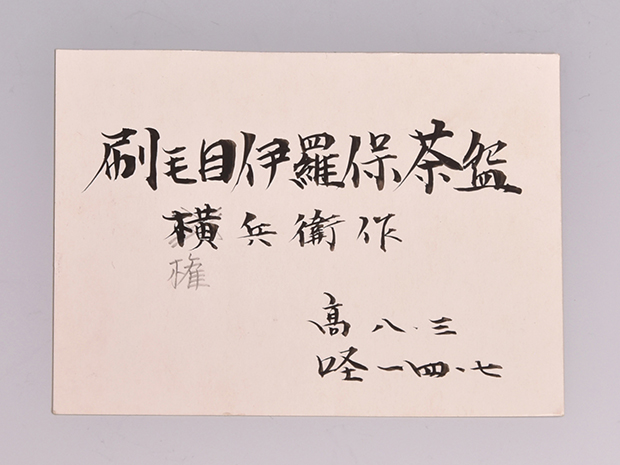 刷毛目伊羅保茶盌
横兵衛作
権
高 八.三
口径 一四.七